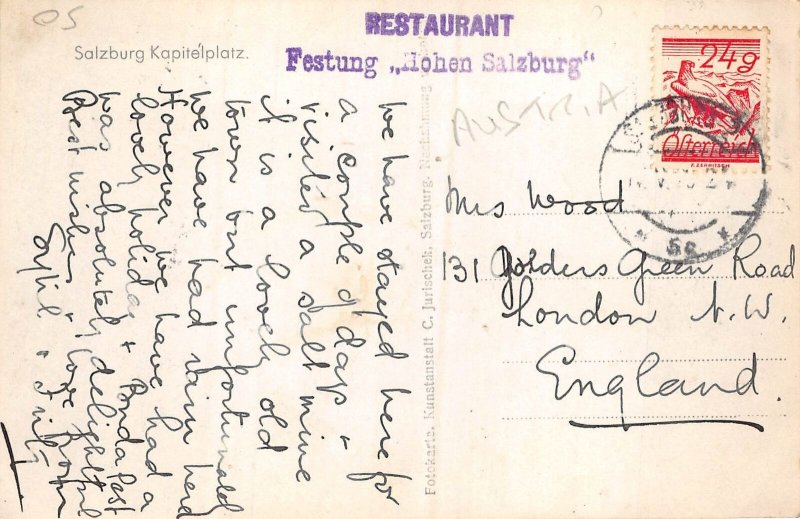 05
Salzburg Kapitelplatz.
RESTAURANT
Festung „Hohen Salzburg"
AUSTRIA
24g
Österreich
we have stayed here for
a couple of days &
visited a salt mine
it is a lovely old
town but unfortunately
we have had rain here
However we have had a
lovely holiday & Budapest
was absolutely delightful
Best wishes & love from
Sybil & Fritz
Fotokarte. Kunstanstalt C. Jurischek, Salzburg.
Mrs Wood
131 Golders Green Road
London N.W.
England.
5c